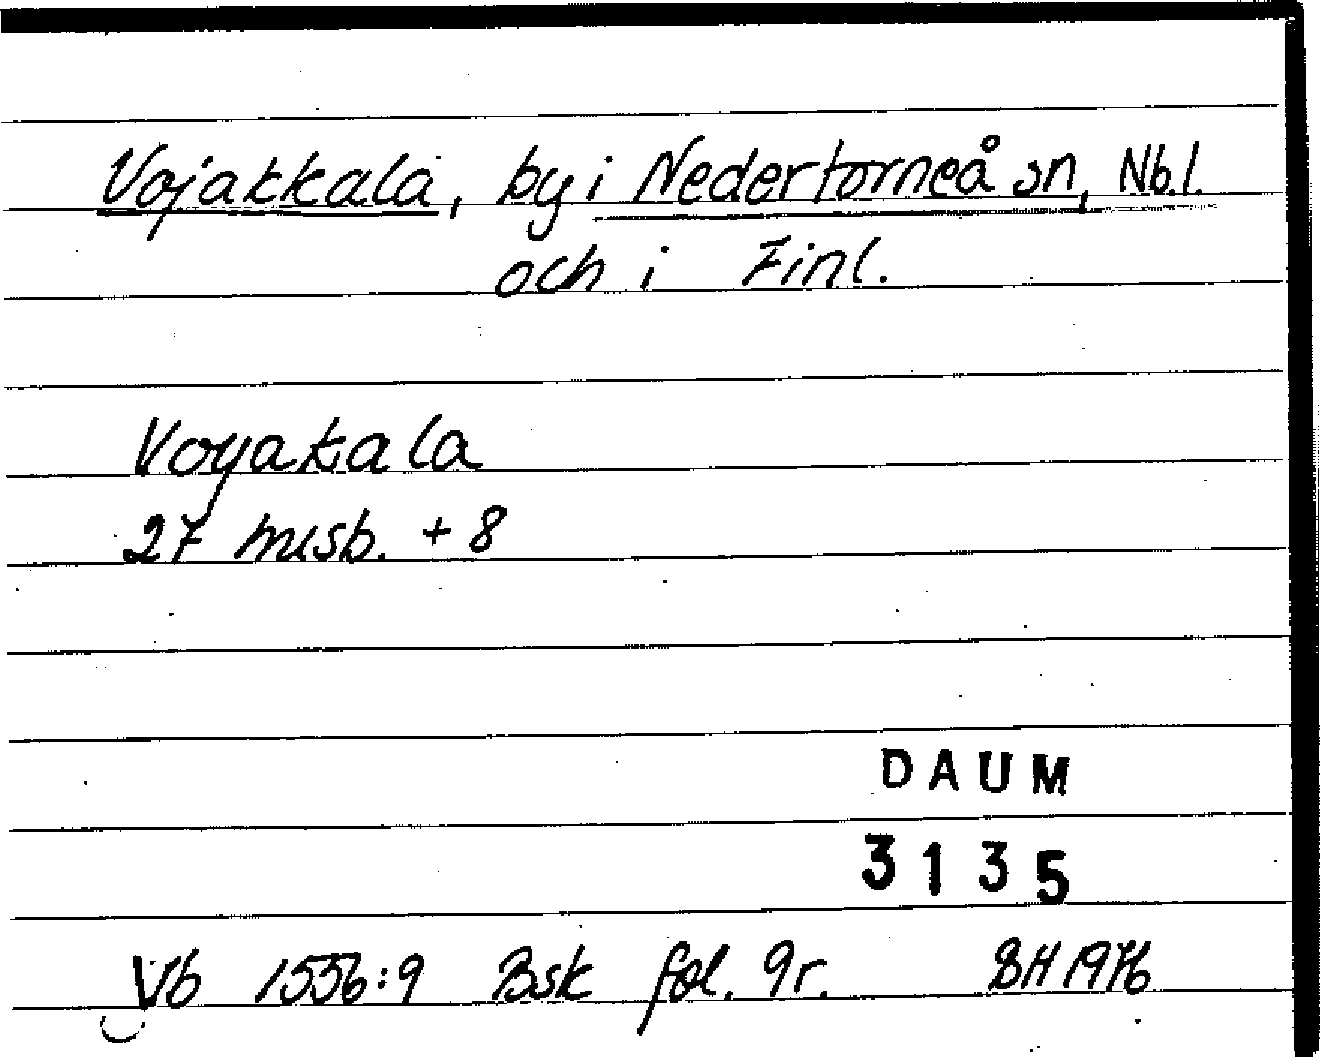 Vojakkala, by i Nedertorneå sn, Nb.l.
och i Finl.
Voyakala
27 misb. + 8
DAUM
3135
Vb 1556:9 Bsk fol. 9r. BH 1976